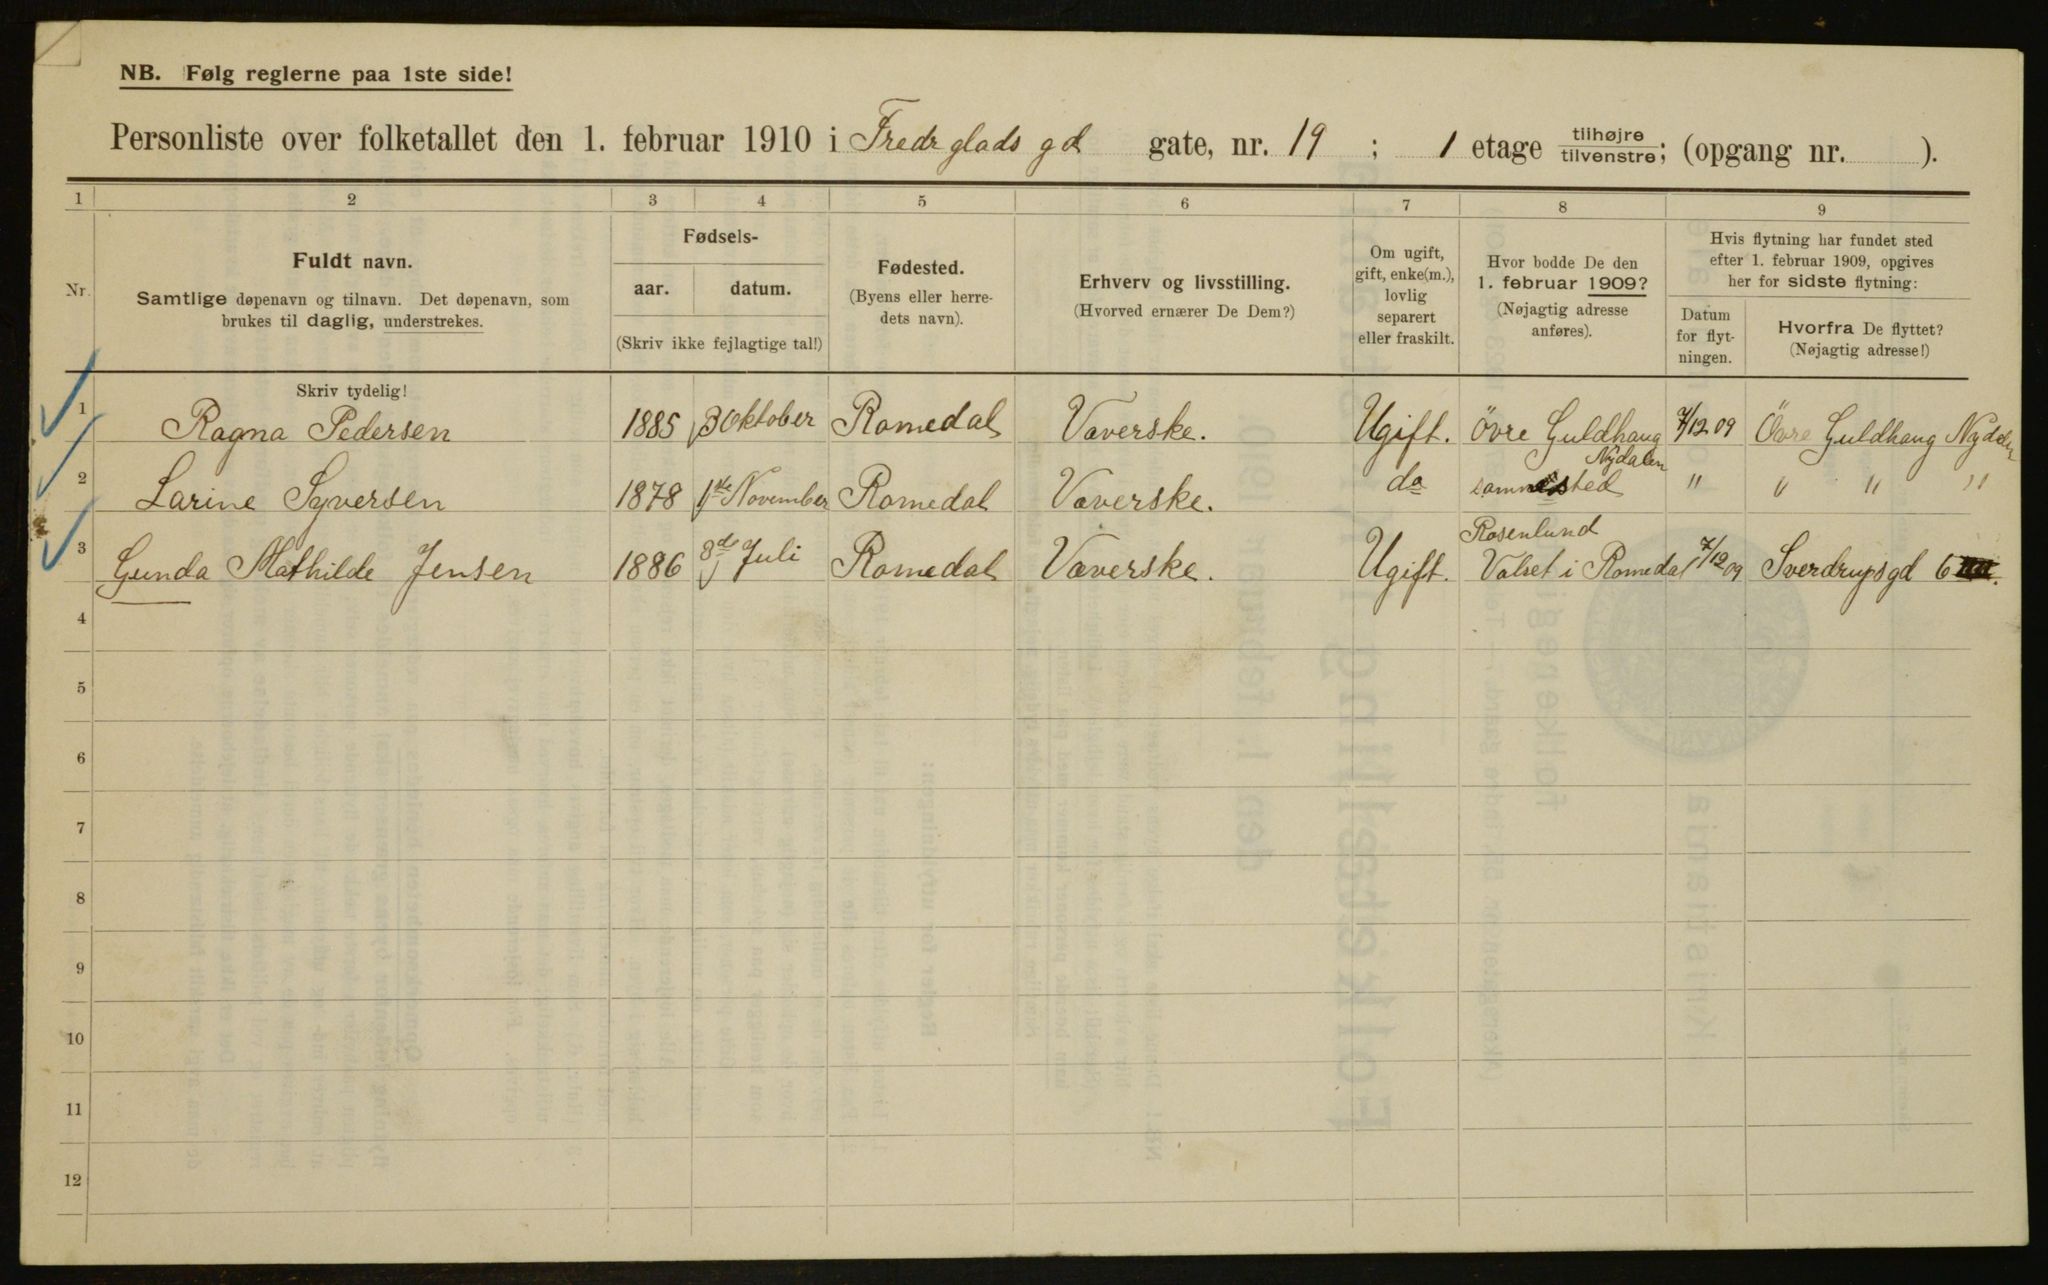 NB. Følg reglerne paa 1ste side!
Personliste over folketallet den 1. februar 1910 i Fredr glads gd gate, nr. 19 ; 1 etage tilhøjre/tilvenstre; (opgang nr. ).
1 2 3 4 5 6 7 8 9
Nr.
Fuldt navn.
Samtlige døpenavn og tilnavn. Det døpenavn, som
brukes til daglig, understrekes.
Fødsels-
aar. datum.
(Skriv ikke fejlagtige tal!)
Fødested.
(Byens eller herre-
dets navn).
Erhverv og livsstilling.
(Hvorved ernærer De Dem?)
Om ugift,
gift, enke(m.),
lovlig
separert
eller fraskilt.
Hvor bodde De den
1. februar 1909?
(Nøjagtig adresse
anføres).
Hvis flytning har fundet sted
efter 1. februar 1909, opgives
her for sidste flytning:
Datum
for flyt-
ningen.
Hvorfra De flyttet?
(Nøjagtig adresse!)
Skriv tydelig!
1 Ragna Pedersen 1885 3 Oktober Romedal Væverske. Ugift. Övre Guldhaug Nydalen 7/12 09 Övre Guldhaug Nydalen
2 Larine Syversen 1878 1ste November Romedal Væverske. do sammested " " " "
3 Gunda Mathilde Jensen 1886 8de Juli Romedal Væverske. Ugift. Rosenlund Valset i Romedal 7/12 09 Sverdrupsgd 6
4
5
6
7
8
9
10
11
12